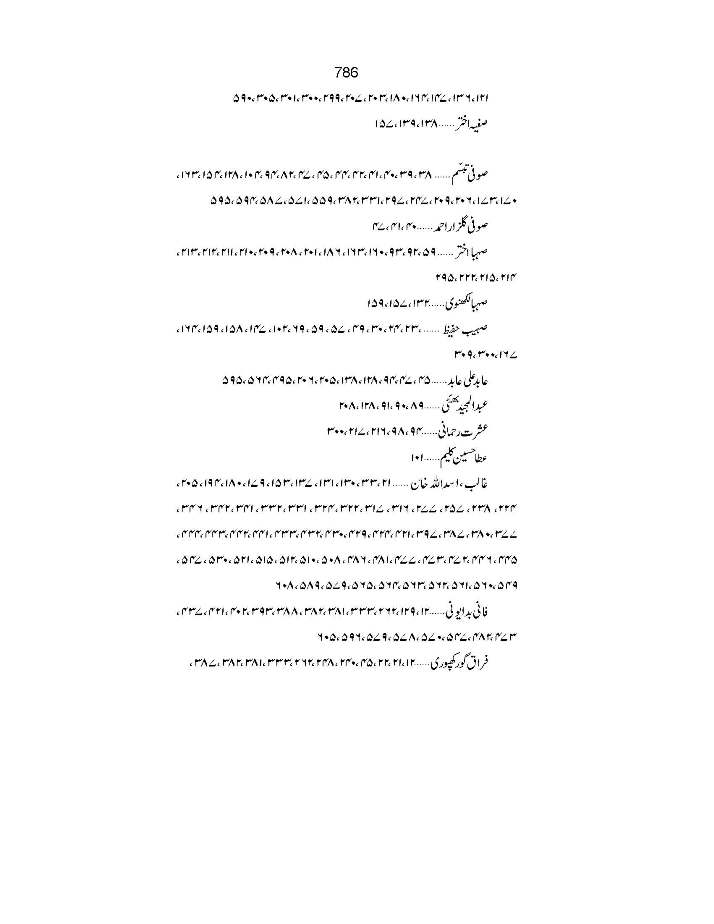 786
۱۲۱،۱۳۶،۱۴۷،۱۶۴،۱۸۰،۲۰۳،۲۰۷،۲۹۹،۳۰۰،۳۰۱،۳۰۵،۵۹۰
صفیہ اختر ......۱۳۸،۱۳۹،۱۵۷
صوفی تبسّم ...... ۳۸،۳۹،۴۰،۴۱،۴۲،۴۴،۴۵،۴۷،۸۲،۹۴،۱۰۴،۱۲۸،۱۵۴،۱۶۳،
۱۷۰،۱۷۳،۲۰۶،۲۰۹،۲۴۷،۲۹۷،۳۳۱،۳۸۲،۵۵۹،۵۷۱،۵۸۷،۵۹۴،۵۹۵
صوفی گلزار احمد ......۴۰،۴۱،۴۷
صہبا اختر ......۵۹،۹۲،۹۳،۱۶۰،۱۶۳،۱۸۶،۲۰۱،۲۰۸،۲۰۹،۲۱۰،۲۱۱،۲۱۲،۲۱۳،
۲۱۴،۲۱۵،۲۲۲،۲۹۵
صہبا لکھنوی......۱۳۲،۱۵۷،۱۵۹
صہیب حفیظ ......،۲۳،۲۴،۳۰،۴۹،۵۷،۵۹،۶۹،۱۰۲،۱۴۷،۱۵۸،۱۵۹،۱۶۴،
۱۶۷،۳۰۰،۳۰۹
عابد علی عابد......۴۵،۴۷،۹۴،۱۲۸،۱۳۸،۲۰۵،۲۰۶،۴۹۵،۵۶۴،۵۹۵
عبدالمجید بھٹی ......۸۹،۹۰،۹۱،۱۲۸،۲۰۸
عشرت رحمانی......۹۴،۹۸،۲۱۶،۲۱۷،۳۰۰
عطا حسین کلیم......۱۰۱
غالب، اسد اللہ خان ......۲۱،۳۳،۱۳۰،۱۳۱،۱۳۷،۱۵۳،۱۷۹،۱۸۰،۱۹۴،۲۰۵،
۲۲۴، ۲۳۸، ۲۵۷، ۲۷۷، ۳۱۶، ۳۱۷،۳۲۲،۳۲۴،۳۳۱،۳۳۲،۳۴۱،۳۴۲،۳۴۶،
۳۷۷،۳۸۰،۳۸۷،۳۹۷،۴۲۱،۴۲۴،۴۲۹،۴۳۰،۴۳۲،۴۳۳،۴۴۱،۴۴۲،۴۴۳،۴۴۴،
۴۴۵،۴۴۶،۴۷۲،۴۷۳،۴۷۷،۴۸۱،۴۸۶،۵۰۸،۵۱۰،۵۱۲،۵۱۵،۵۲۱،۵۳۰،۵۴۷،
۵۴۹،۵۶۰،۵۶۱،۵۶۲،۵۶۳،۵۶۴،۵۶۵،۵۷۹،۵۸۹،۶۰۸
فانی بدایونی......۱۲،۱۲۹،۲۶۲،۳۳۳،۳۸۱،۳۸۲،۳۸۸،۳۹۳،۴۰۲،۴۲۱،۴۳۷،
۴۷۳،۴۸۲،۵۴۷،۵۷۰،۵۷۸،۵۷۹،۵۹۶،۶۰۵
فراق گورکھپوری......۱۲،۲۱،۲۲،۴۵،۲۴۰،۲۴۸،۲۶۲،۳۳۳،۳۸۱،۳۸۲،۳۸۷،